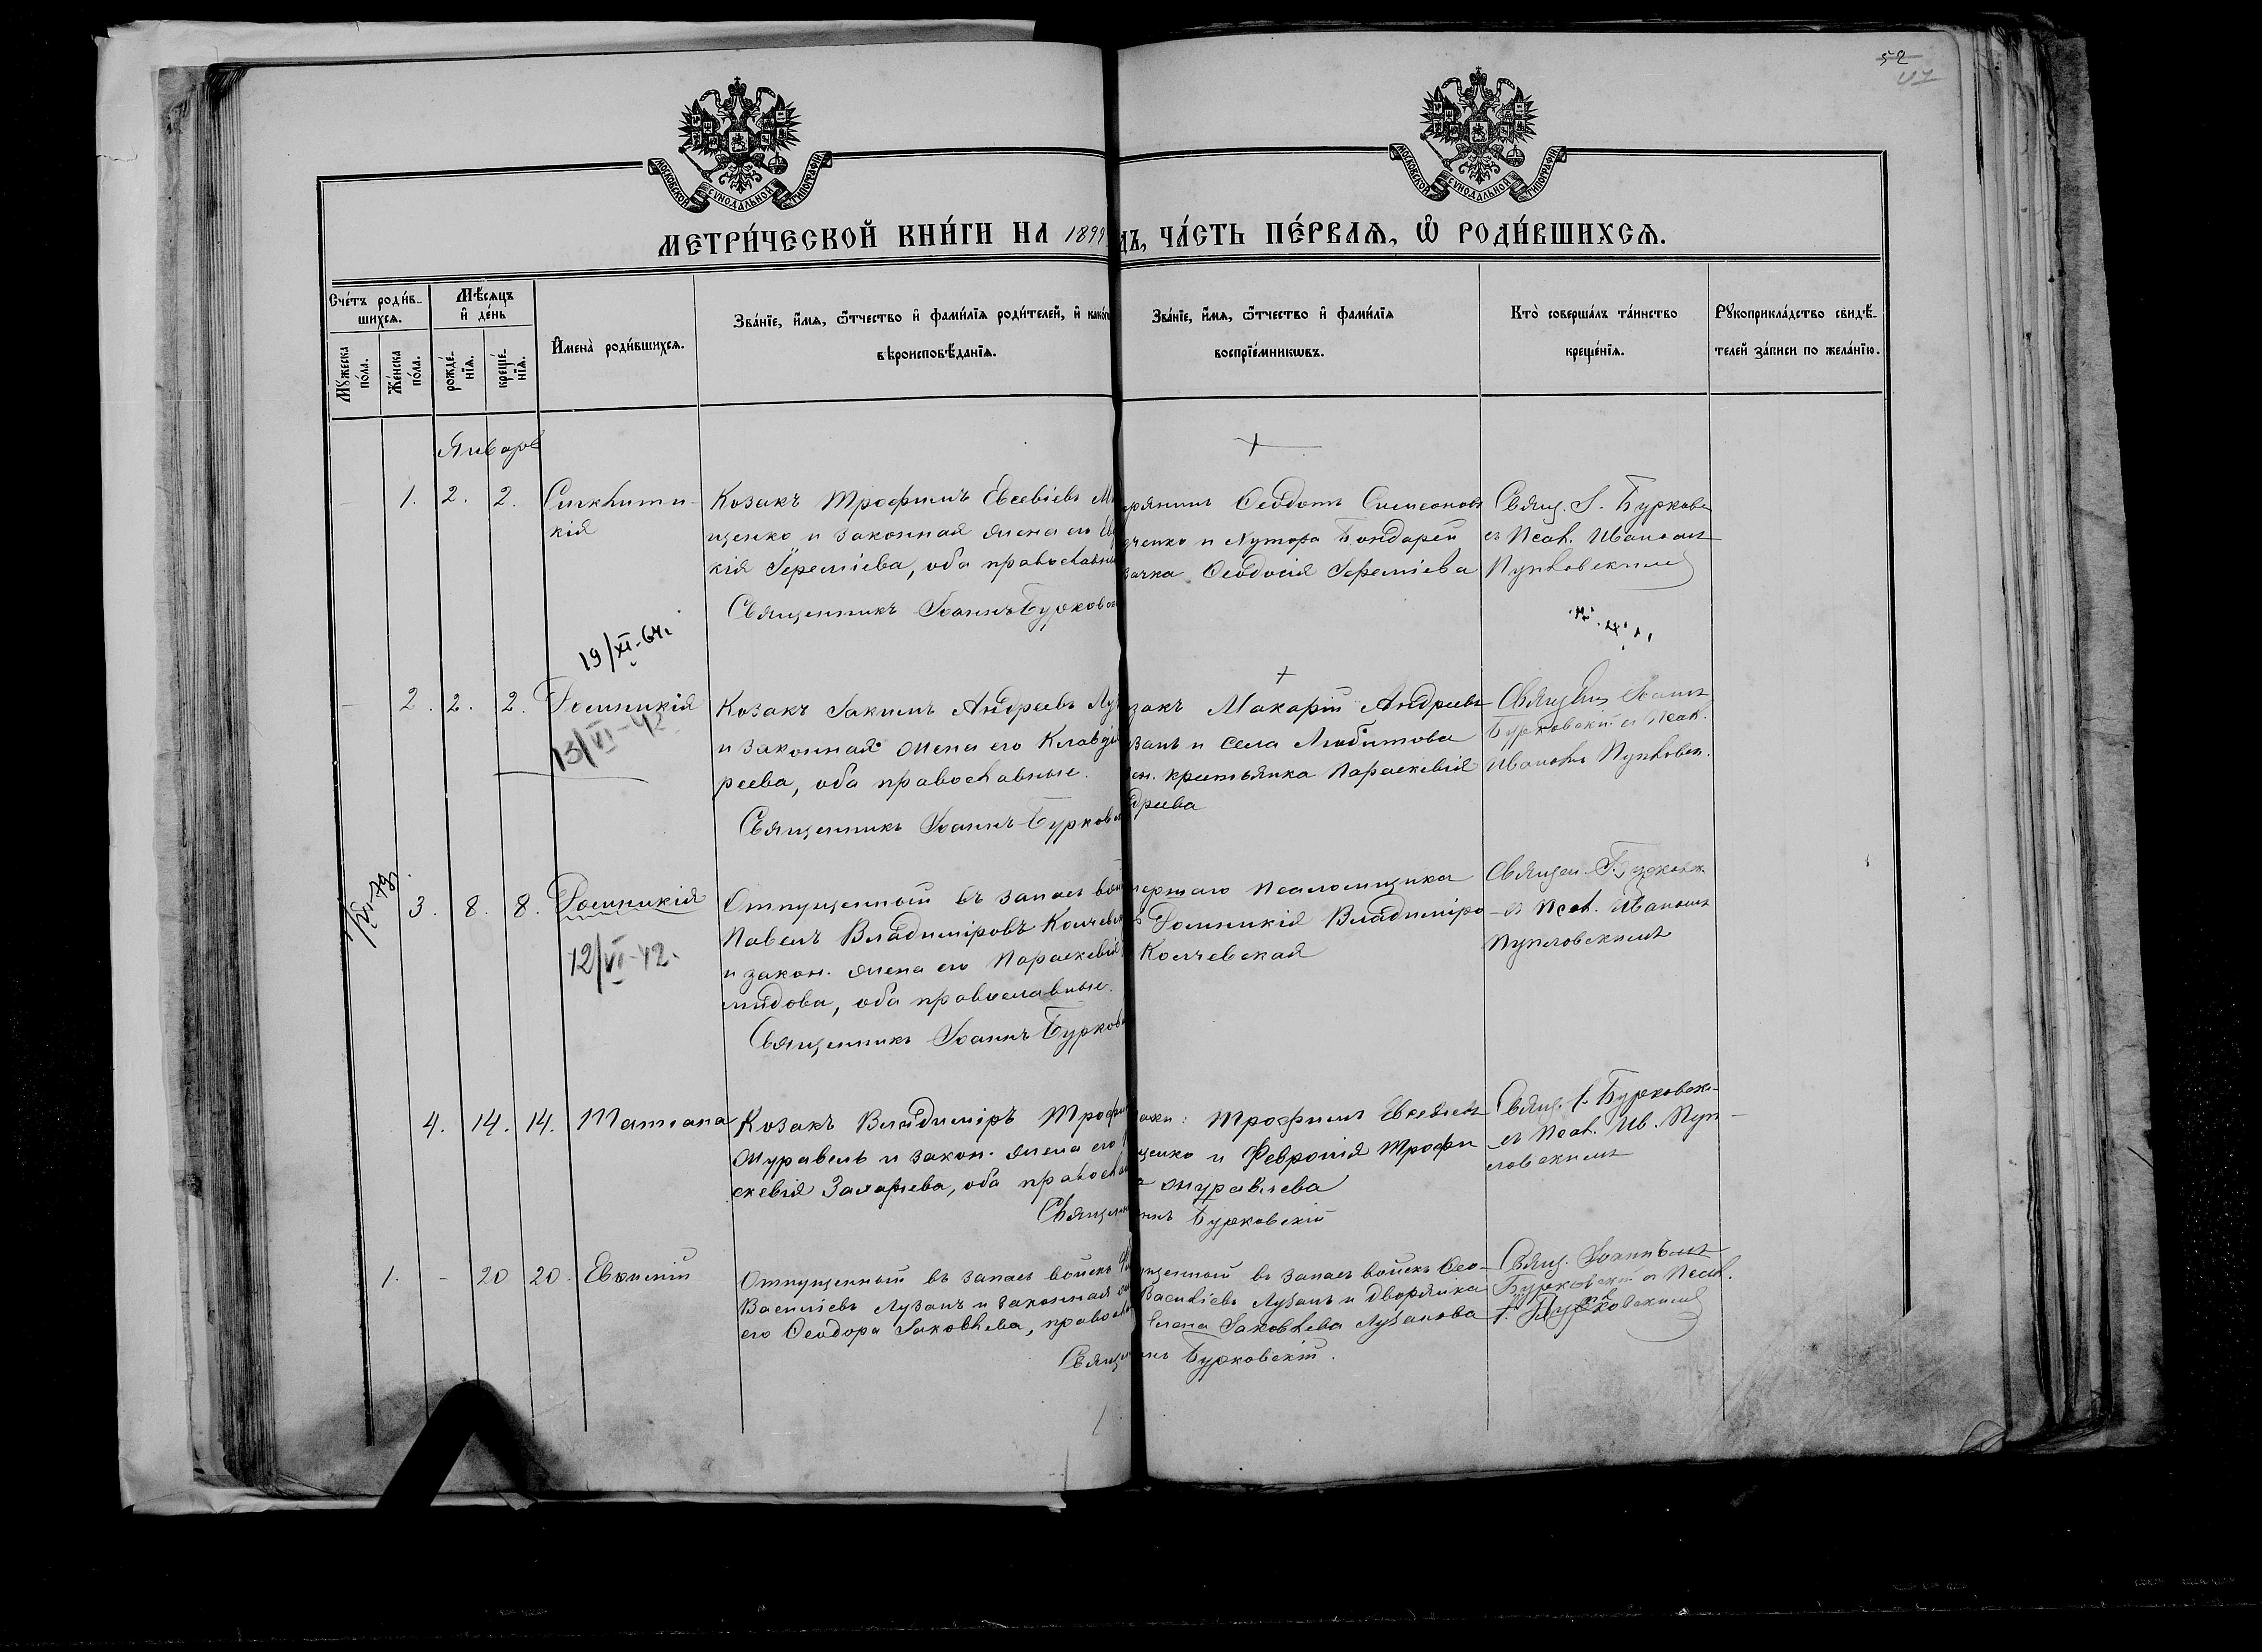 52
МОСКОВСКОЙ СУНОДАЛЬНОЙ ТИПОГРАФІИ
МОСКОВСКОЙ СУНОДАЛЬНОЙ ТИПОГРАФІИ
МЕТРИ́ЧЕСКОЙ КНИ́ГИ НА 1899 ДЪ, ЧА́СТЬ ПЕ́РВАѦ, Ѡ҆ РОДИ́ВШИХСѦ.
Сче́тъ роди́в-
шихсѧ.
Мꙋ́жеска
по́ла.
Же́нска
по́ла.
Мѣ́сѧцъ
и҆ де́нь
рожде́-
нїѧ.
креще́-
нїѧ.
И҆мена̀ роди́вшихсѧ.
Зва́нїе, и҆́мѧ, ѻ҆́тчество и҆ фами́лїѧ роди́телей, и҆ како́
вѣроисповѣ́данїѧ.
Зва́нїе, и҆́мѧ, ѻ҆́тчество и҆ фами́лїѧ
воспрїе́мникѡвъ.
Кто̀ соверша́лъ та́инство
креще́нїѧ.
Рꙋкоприкла́дство свидѣ́-
телей за́писи по жела́нїю.
Январь
1. 2. 2.
Синклити-
кія
Козакъ Трофимъ Евсевіевъ М
щенко и законная жена его Ев
кія Іереміева, оба православны
Священникъ Іоаннъ Бурковск
Ѳеодотъ Симеоновъ
ченко и хутора Бондарей
зачка Ѳеодосія Іереміева
Свящ. І. Бурковск
съ Псал. Иваномъ
Пупловскимъ
19/XI-64.
2. 2. 2.
Домникія
13/VI-42
Козакъ Іакимъ Андреевъ Луз
и законная жена его Клавді
реева, оба православные.
Священникъ Іоаннъ Бурковск
закъ Макарій Андреевъ
занъ и села Любитова
крестьянка Параскевія
дреева
Іоаннъ
Бурковскій съ Псал.
Иваномъ Пупловск.
3. 8. 8.
Домникія
12/VI-42.
Отпущенный въ запасъ вой
Павелъ Владиміровъ Колчевск
и закон. жена его Параскевія
мидова, оба православные.
Священникъ Іоаннъ Бурковс
мершаго Псаломщика
Домникія Владиміро
Колчевская
Священ. І. Бурковск
съ Псал. Иваномъ
Пупловскимъ
4. 14. 14.
Татіана
Козакъ Владиміръ Трофим
Журавель и закон. жена его
скевія Захаріева, оба правосла
Священ
заки: Трофимъ Евсевіевъ
щенко и Февронія Трофи
Журавлева
Бурковскій
Свящ. І. Бурковск-
съ Псал. Ив. Пуп-
ловскимъ
1. - 20 20.
Евѳимій
Отпущенный въ запасъ войскъ
Василіевъ Лузанъ и законная
его Ѳеодора Іаковлева, правосла
Свящ
щенный въ запасъ войскъ Ѳео-
Василіевъ Лузанъ и дворянка
Елена Іаковлева Лузанова
Бурковскій.
Свящ. Іоанномъ
Бурковскій съ Псал.